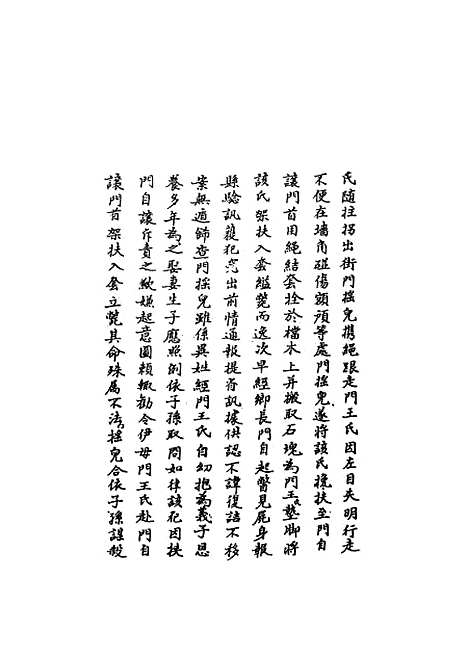 氏隨拄拐出街門揺兒攜繩跟走門王氏因左目失明行走
不便在墻角碰傷額顱等處門揺兒遂將該氏攙扶至門自
讓門首用繩結套拴於檔木上并搬取石塊為門王氏墊脚將
該氏架扶入套縊斃而逸次早經鄉長門自起瞥見屍身報
縣驗訊獲犯究出前情通報提省訊據供認不諱復詰不移
案無遁飾查門揺兒雖係異姓經門王氏自幼抱為義子恩
養多年為之娶妻生子應照例依子孫取問如律該犯因挾
門自讓斥責之嫌起意圖賴輒勸令伊母門王氏赴門自
讓門首架扶入套立斃其命殊屬不法揺兒合依子孫謀殺